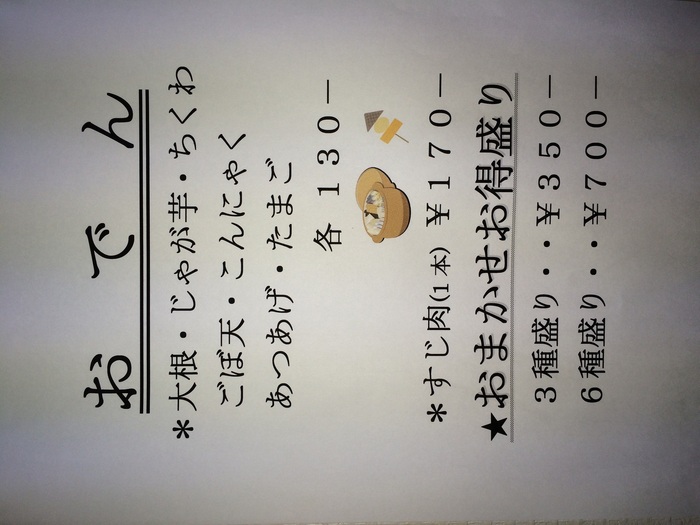 おでん
＊大根・じゃが芋・ちくわ
ごぼ天・こんにゃく
あつあげ・たまご
各 １３０－
＊すじ肉(１本) ￥１７０－
★おまかせお得盛り
３種盛り・・￥３５０－
６種盛り・・￥７００－